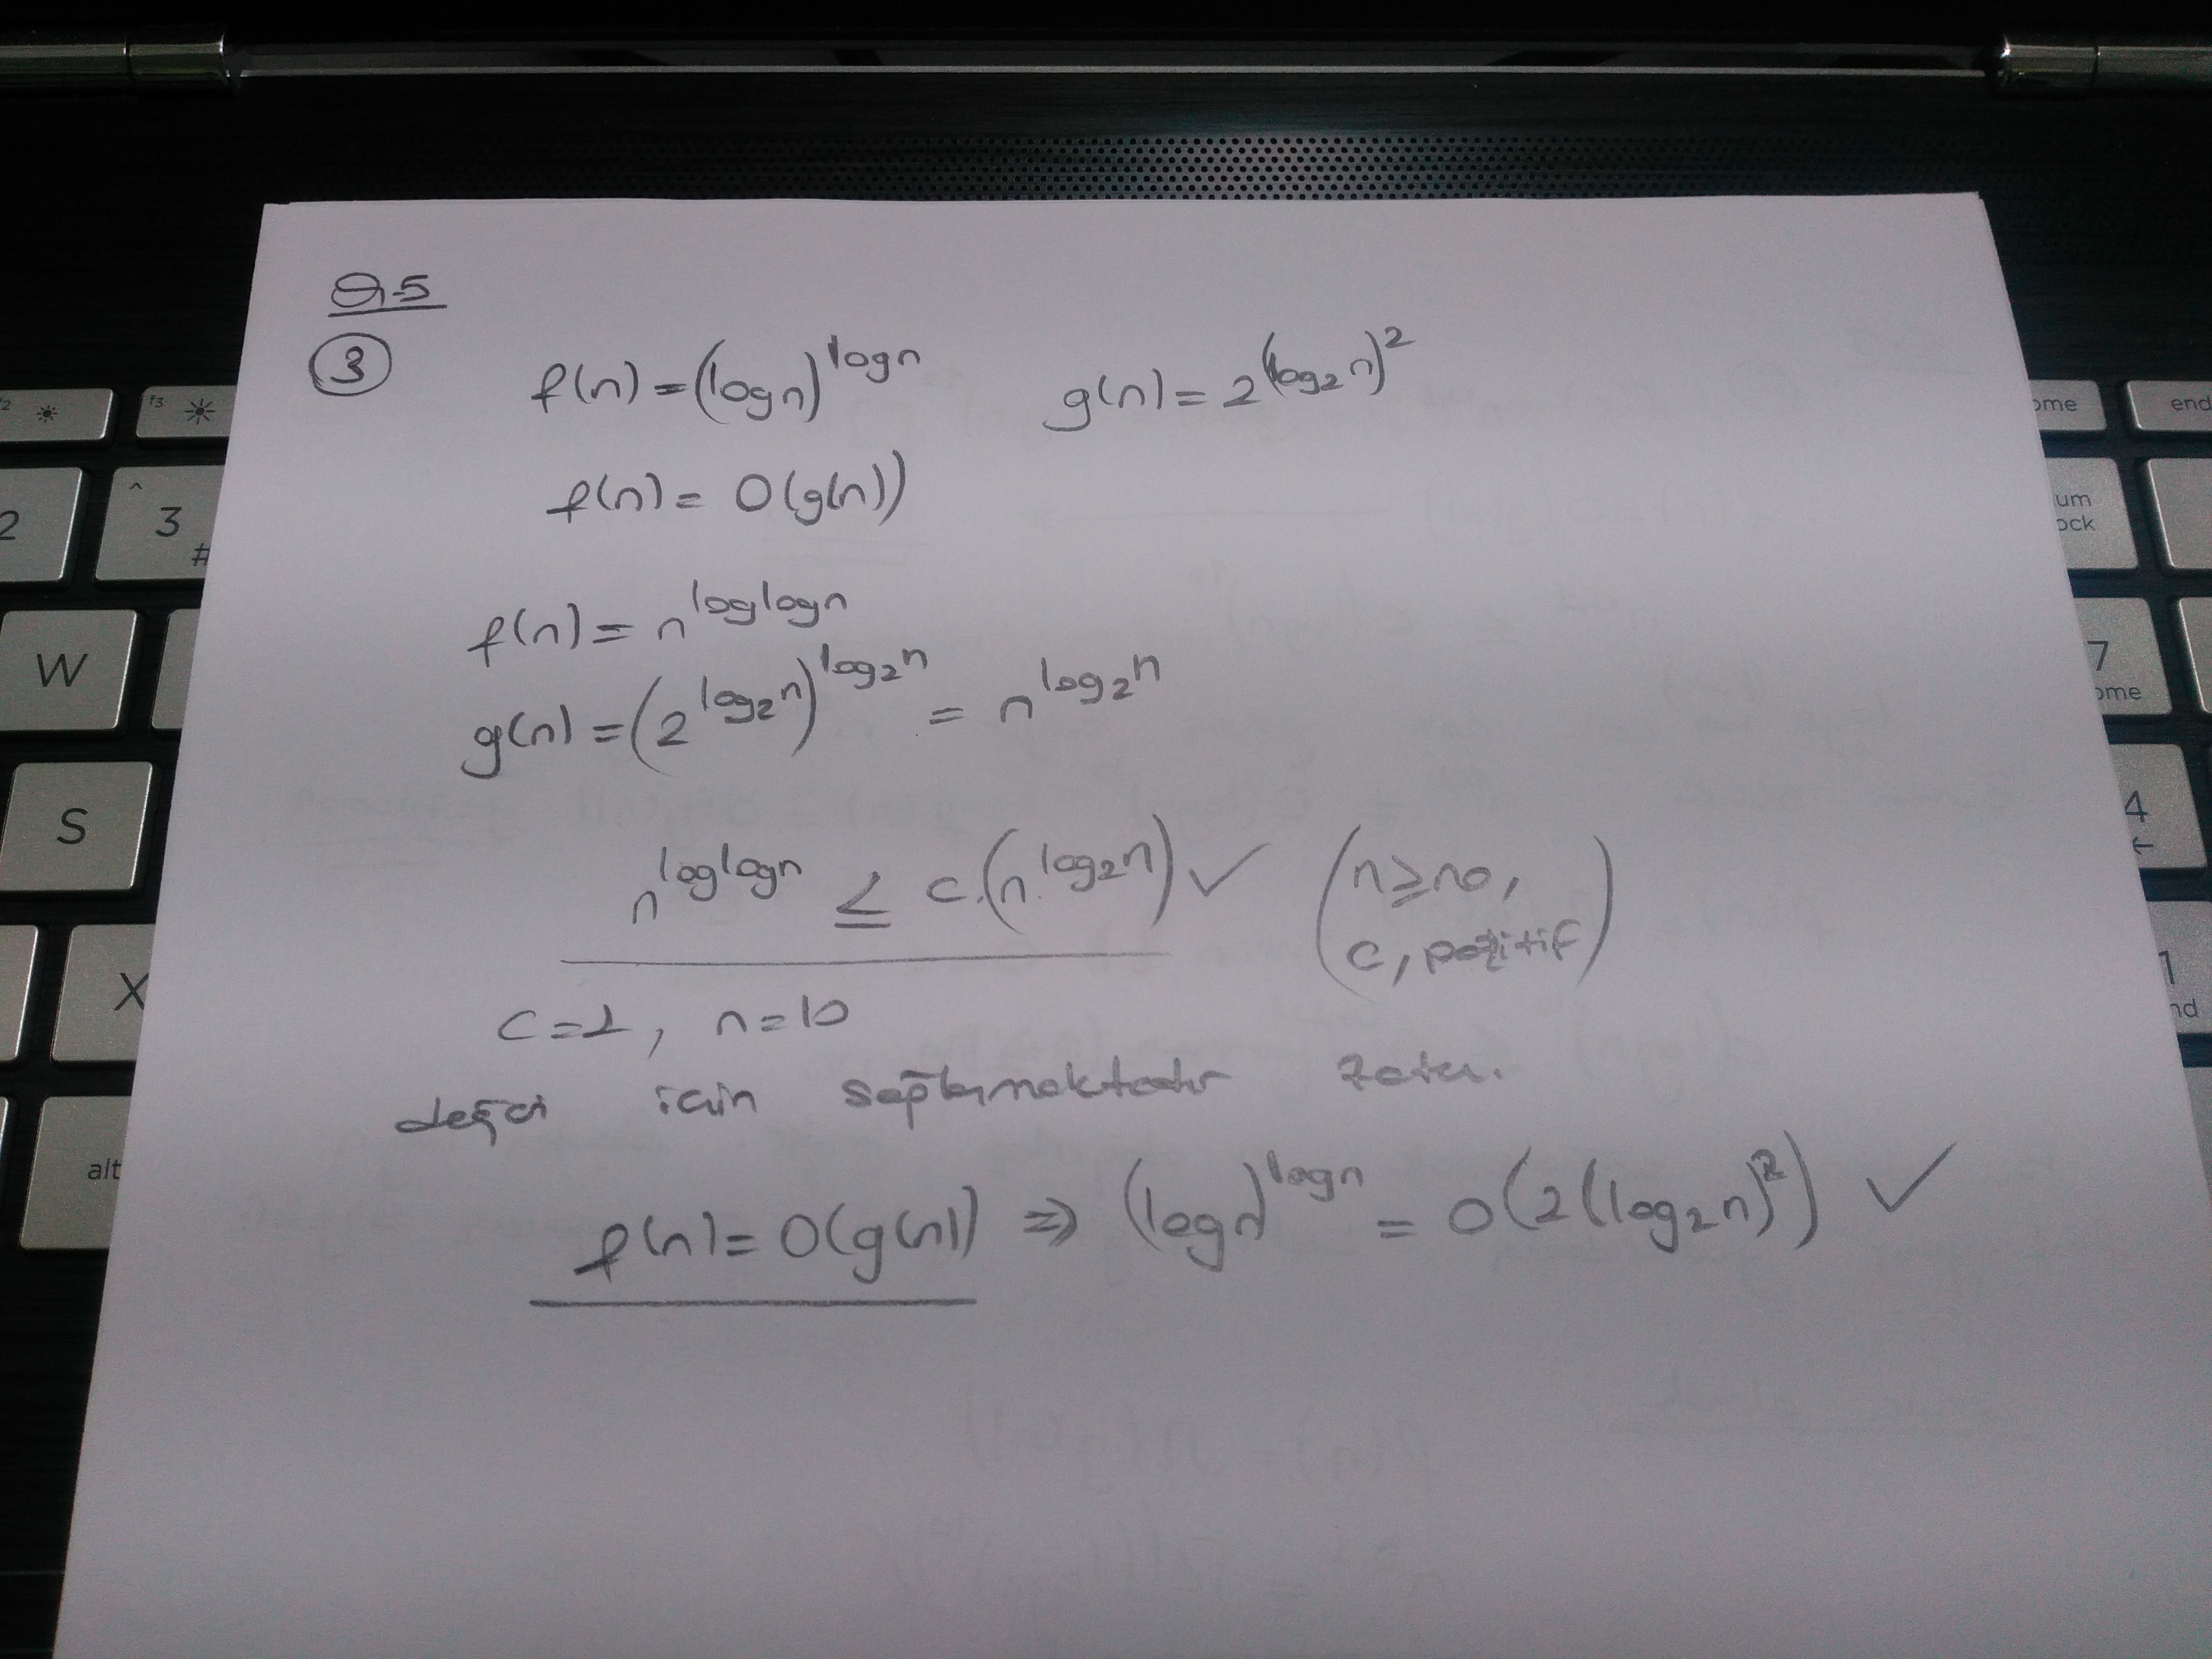 Q-5
3
f(n) = (logn)^logn g(n) = 2^(log₂n)²
f(n) = O(g(n))
f(n) = n^loglogn
g(n) = (2^log₂n)^log₂n = n^log₂n
n^loglogn ≤ c.(n^log₂n) ✓ (n ≥ n0,
c, pozitif)
c = 1, n = 10
için sağlamaktadır zaten.
f(n) = O(g(n)) ⇒ (logn)^logn = O(2(log₂n)²) ✓
f2
f3
ome
end
2
^
3
#
um
ock
W
7
ome
S
4
←
X
1
nd
alt